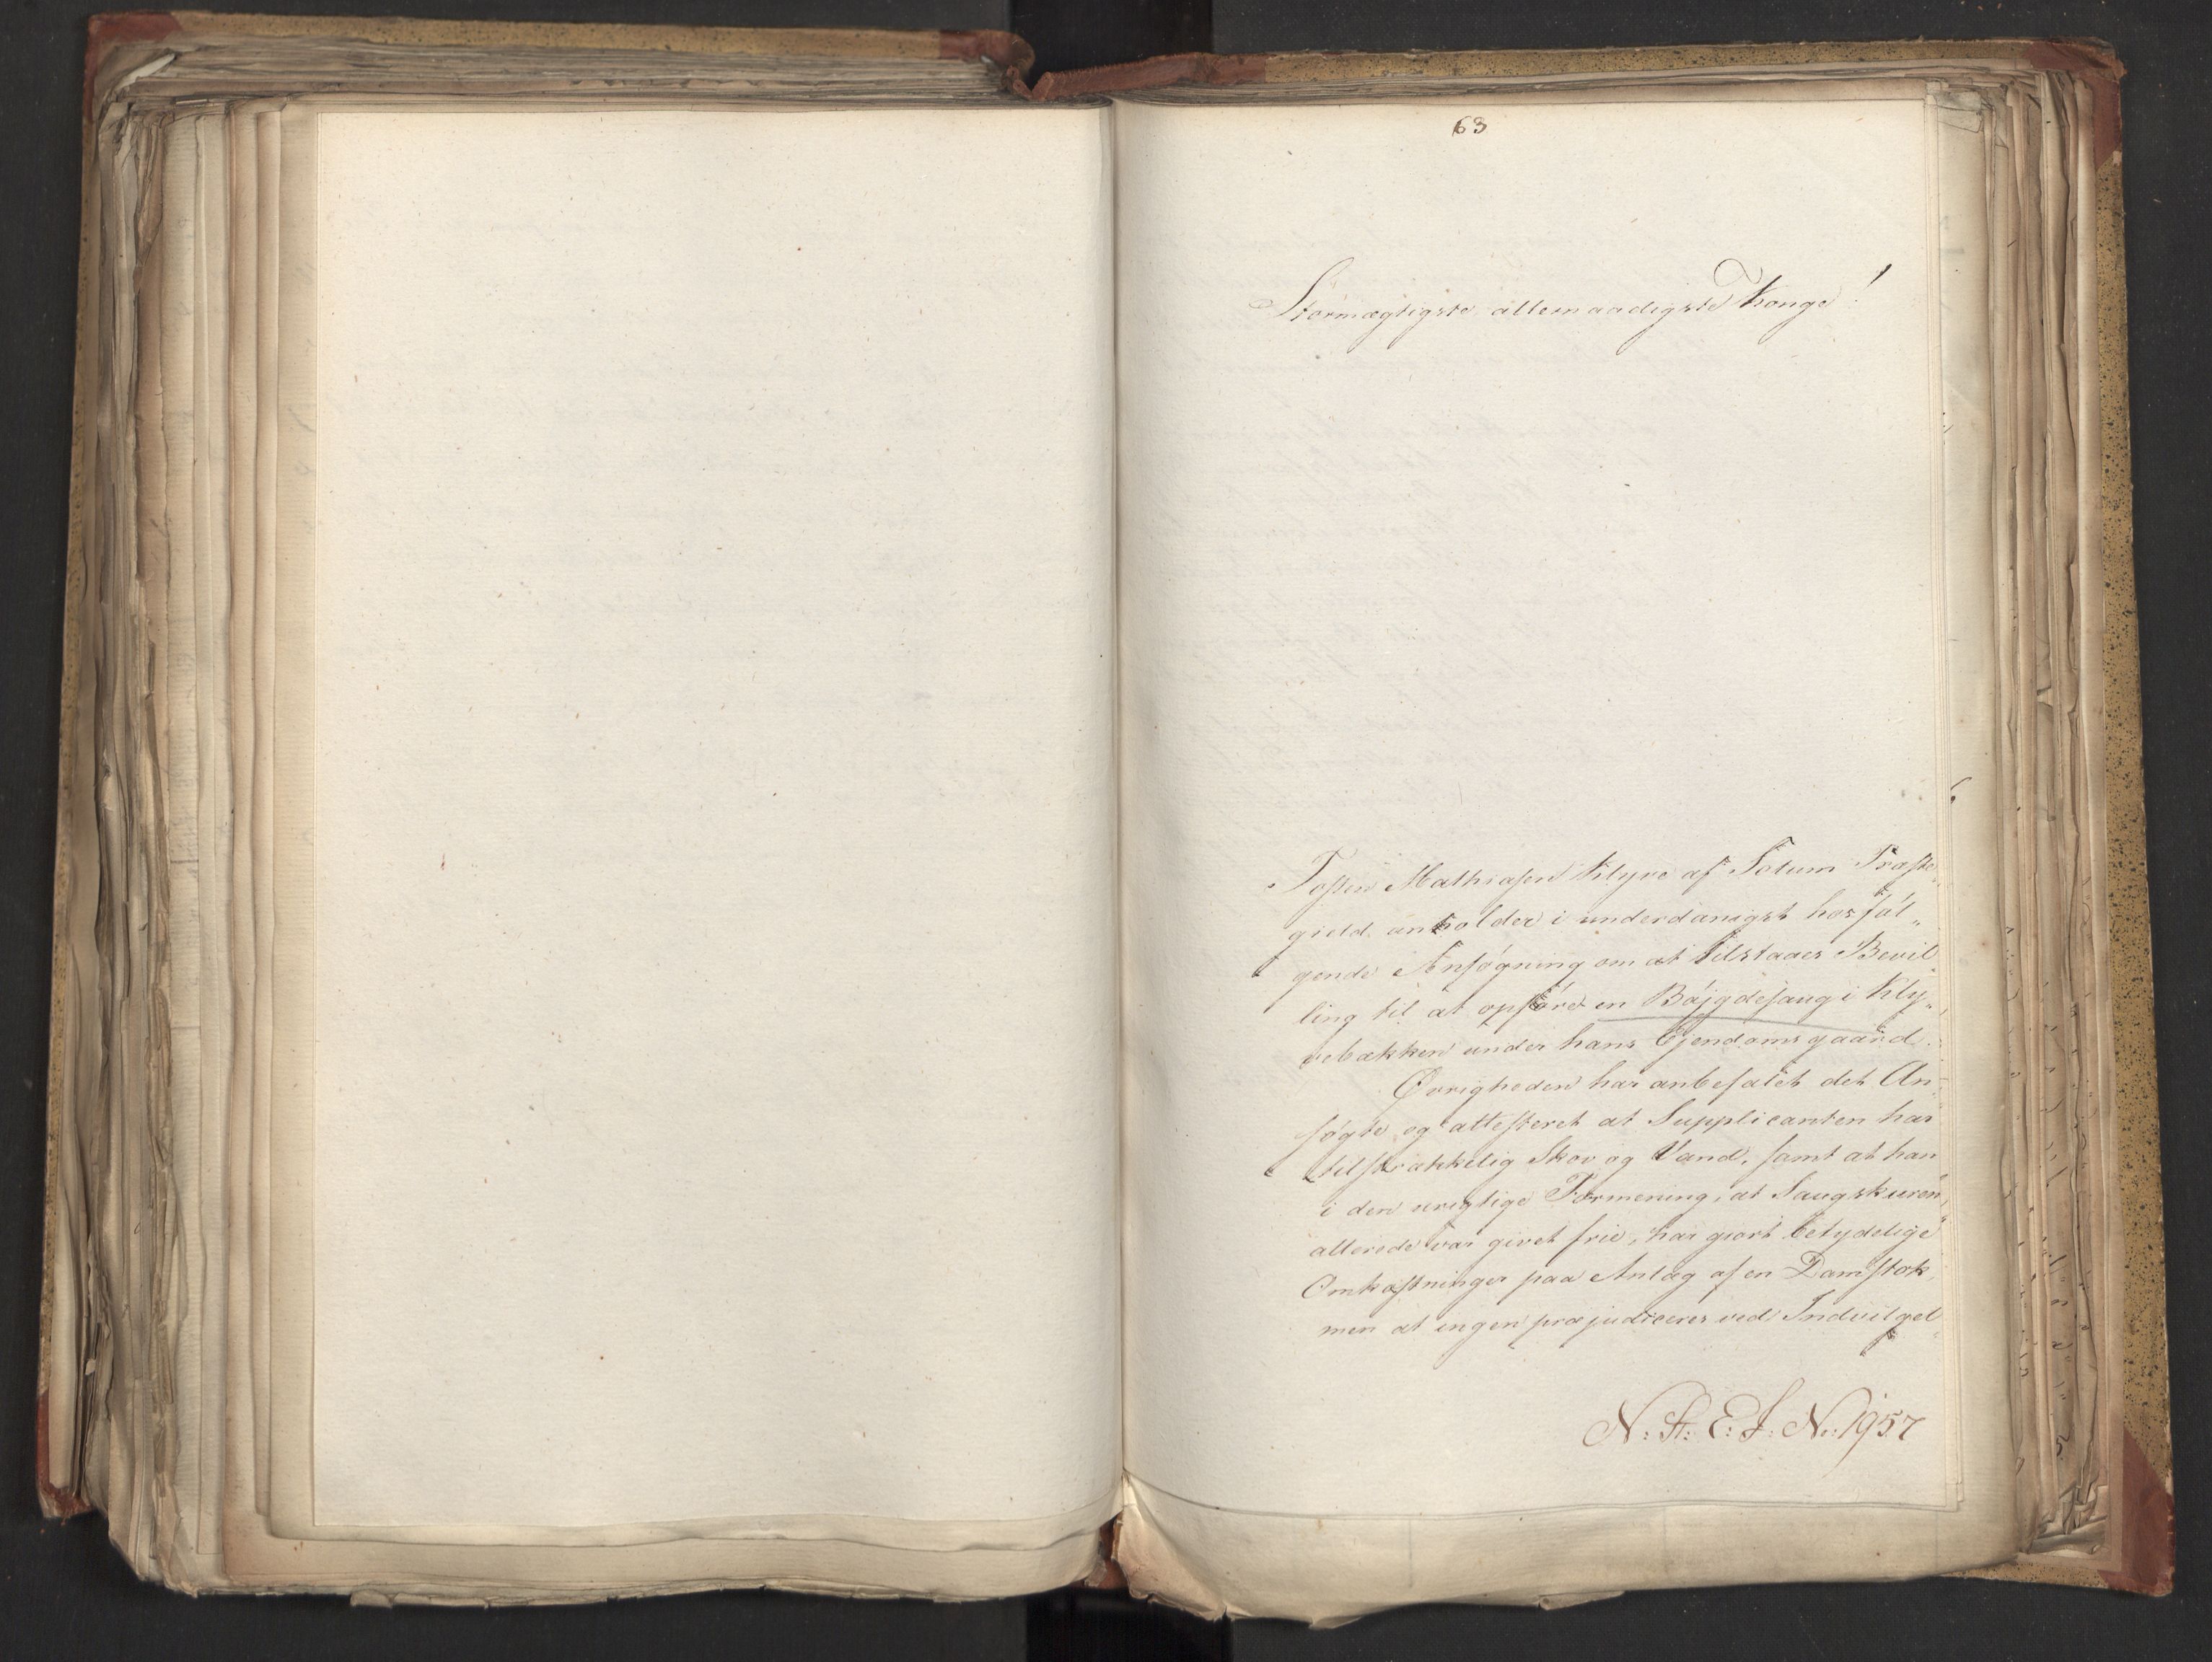 63
Stormægtigste allernaadigste Konge!
Tosten Mathiasen Klyve af Solum Præste„
gield anholder i underdanigst hosføl„
gende Ansøgning om at tilstaaes Bevil„
ling til at opføre en Bøjgdesaug i Kly„
vebækken under hans Ejendomsgaard.
Øvrigheden har anbefalet det An„
søgte og attesteret at Supplicanten har
tilstrækkelig Skov og Vand, samt at han
i den urigtige Formening, at Saugskuren„
allerede var givet frie, har giort betydelige
Omkostninger paa Anlæg af en Damstok,
men at ingen præjudiceres ved Indvilgel„
N: St: E: J: No: 1957